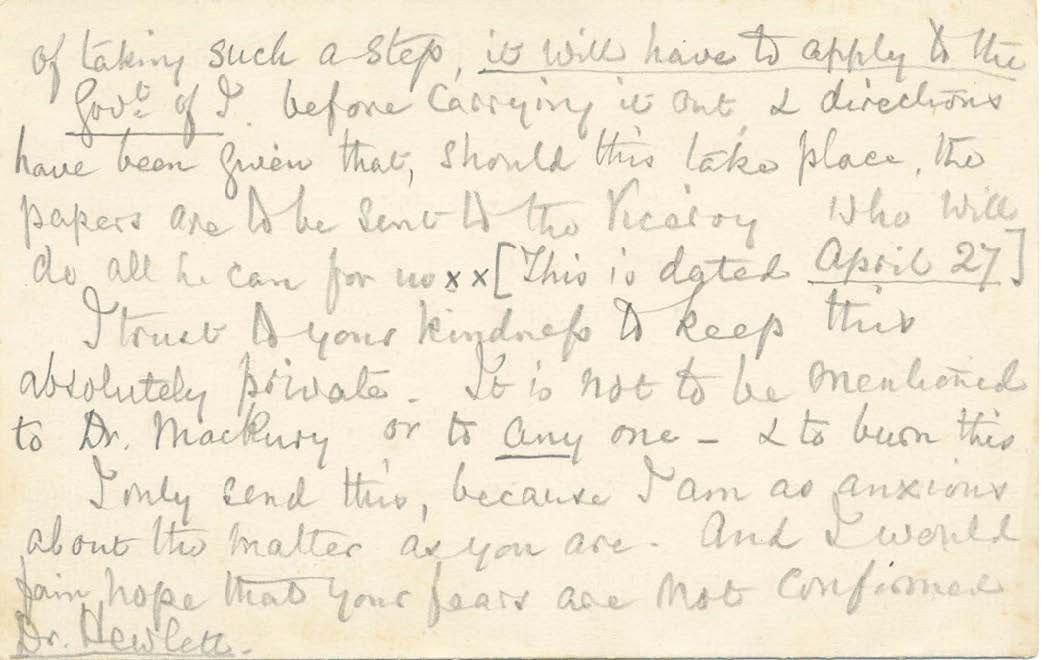 of taking such a step, it will have to apply to the
Govt. of I. before carrying it out, & directions
have been given that, should this take place, the
papers are to be sent to the Viceroy who will
do all he can for us x x [This is dated April 27]
I trust to your kindness to keep this
absolutely private. It is not to be mentioned
to Dr. Mackury or to any one – & to burn this
I only send this, because I am as anxious
about the matter as you are. And I would
fain hope that your fears are not confirmed
Dr. Hewlett.